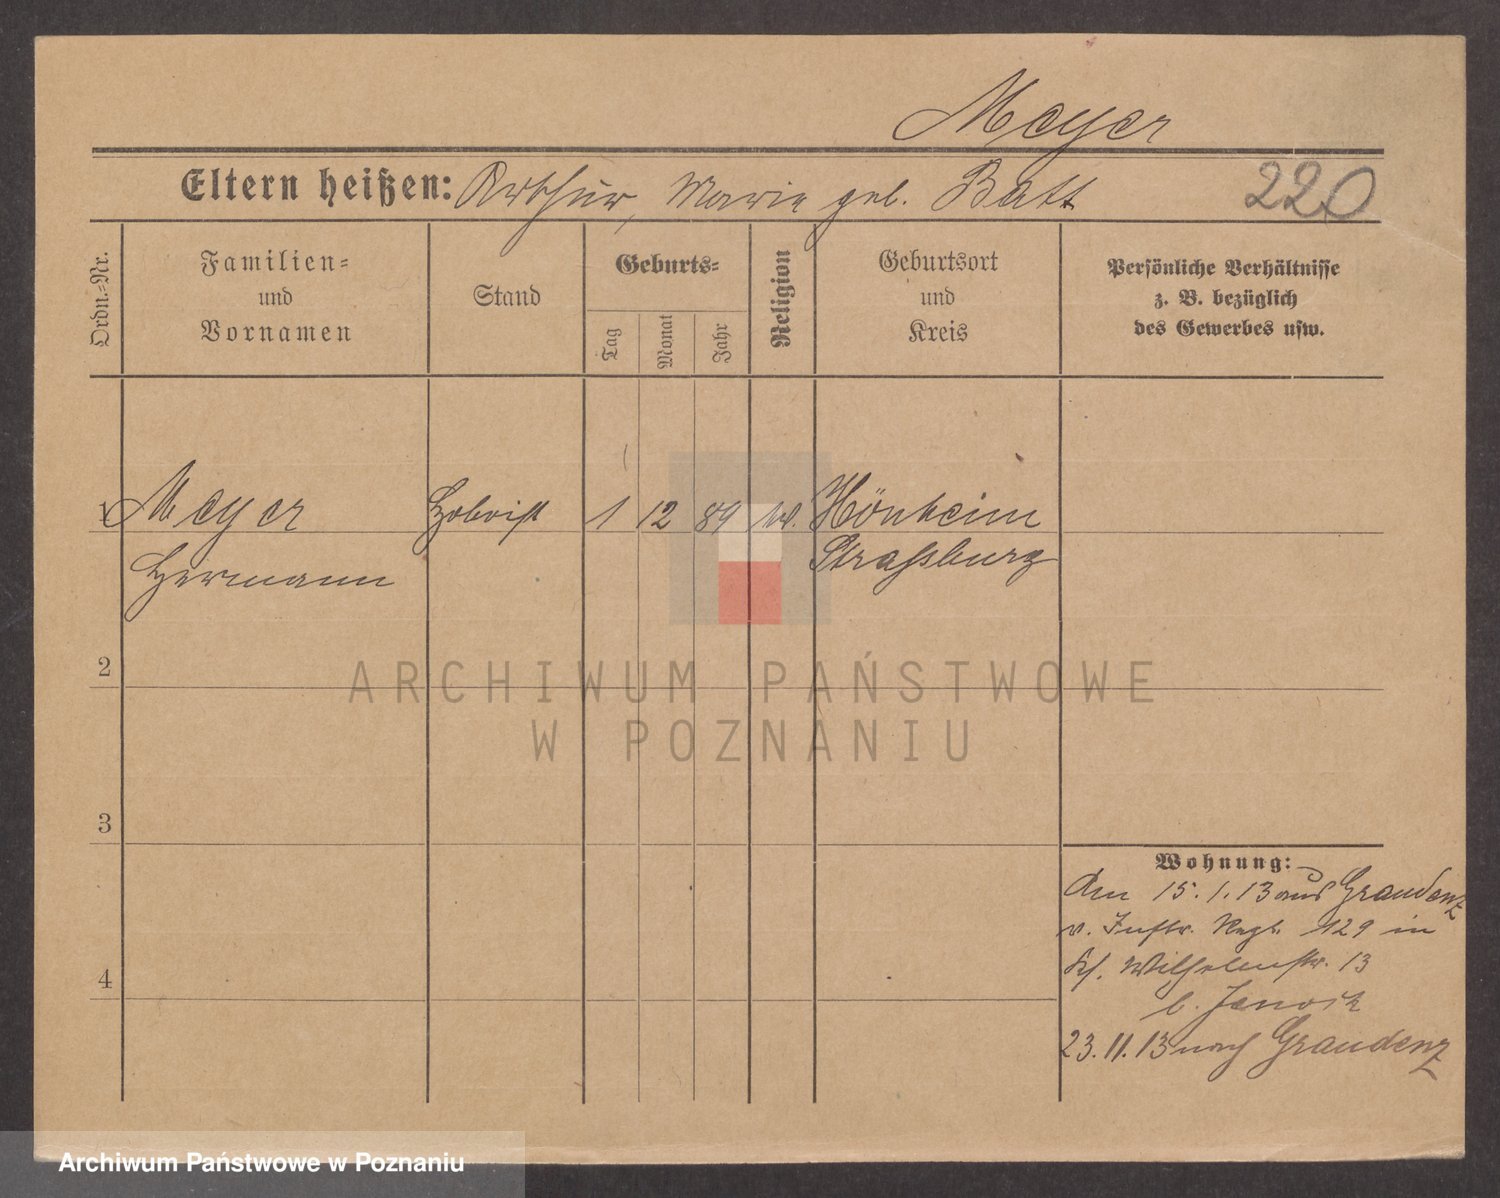 Meyer
Eltern heißen: Arthur, Marie geb. Batt
220
Ordn.-Nr.
Familien-
und
Vornamen
Stand
Geburts-
Tag
Monat
Jahr
Religion
Geburtsort
und
Kreis
Persönliche Verhältnisse
z. B. bezüglich
des Gewerbes usw.
1 Meyer Hoboist 1 12 89 Hönheim
Hermann Straßburg
2
ARCHIWUM PAŃSTWOWE
W POZNANIU
3
Wohnung:
Am 15.1.13 aus Graudenz
v. Inftr. Regt. 129 in
Wilhelmstr. 13
b.
4
23.11.13 nach Graudenz
Archiwum Państwowe w Poznaniu